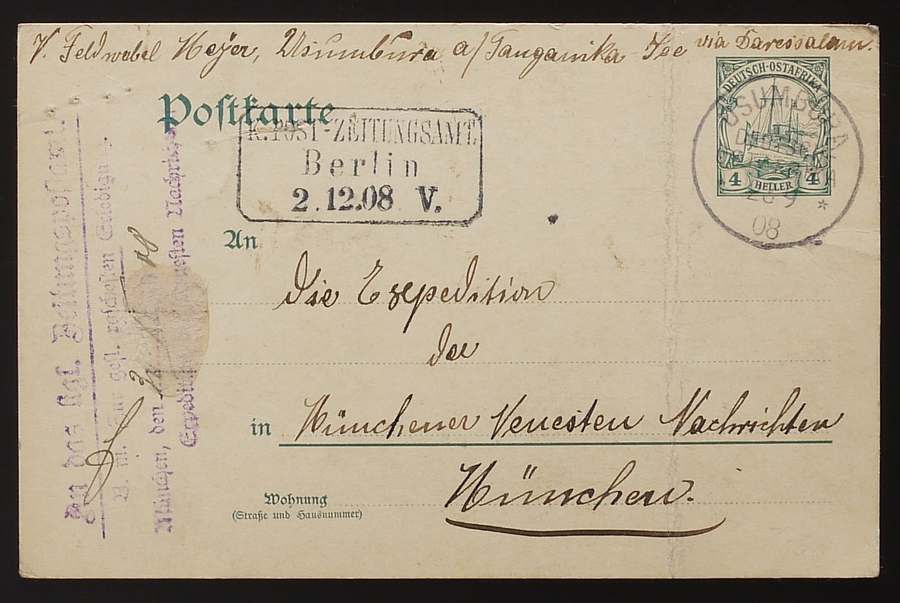 V. Feldwebel Meyer, Usumbura a/Tanganika-See via Daressalam.
DEUTSCH-OSTAFRIKA
4 HELLER 4
USUMBURA
9
08
*
Postkarte
K. POST-ZEITUNGSAMT.
Berlin
2.12.08 V.
An
Die Expedition
der
in Münchener Neuesten Nachrichten
München.
Wohnung
(Straße und Hausnummer)
An das Kgl. Zeitungspostamt
B. m. gefl. raschesten Erledigung
München, den 08
Expedition Neuesten Nachrichten